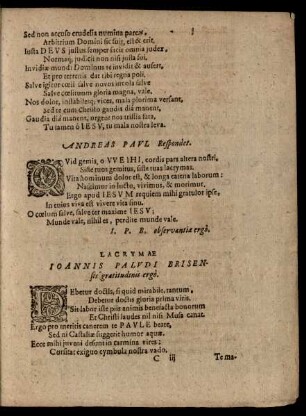 Sed non accuso crudelia numina parcæ,
Arbitrium Domini sic fuit, est & erit.
Iusta DEVS justus semper facit omnia judex,
Normaq; judicii non nisi justa sui.
Invidiæ mundi Dominus te invidit & aufert,
Et pro terrenis dat tibi regna poli.
Salve igitur cœli salve novus incola salve
Salve cœlituum gloria magna, vale.
Nos dolor, instabilesq; vices, mala plurima versant,
Sed te cum Christo gaudia dia manent,
Gaudia dia manent, urgent nos tristia fata,
Tu tamen ô IESV, tu mala nostra leva.
ANDREAS PAVL Respondet.
QVid gemis, o VVEIHI, cordis pars altera nostri,
Siste meos gemitus, siste tuas lacrymas.
Vita hominum dolor est, & longa catena laborum:
Nascimur in luctu, vivimus, & morimur.
Ergo apud IESVM requiem mihi gratulor ipse,
In cujus viva est vivere vita sinu.
O cœlum salve, salve ter maxime IESV;
Munde vale, nihil es, perdite munde vale.
I. P. B. observantiæ ergò.
LACRYMAE
IOANNIS PALVDI BRISEN-
sis gratitudinis ergò.
DEbetur doctis, si quid mirabile, tantum,
Debetur doctis gloria prima viris.
Sit labor iste piis animis benefacta bonorum
Et Christi laudes nil nisi Musa canat.
Ergo pro meritis canerem te PAVLE beate,
Sed ni Castaliæ suggerit humor aquæ.
Ecce mihi juveni desunt in carmina vires:
Cursitat exiguo cymbula nostra vado.
C iij
Tema-